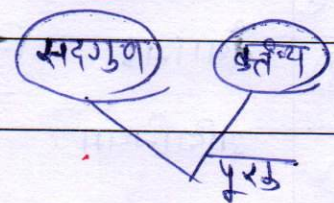 सदगुण कर्तव्य
पूरक